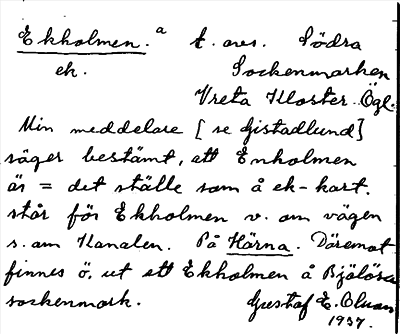 Ekholmen.ᵃ t. avs. Södra
ek. Sockenmarken
Vreta Kloster. Ögl.
Min meddelare [se Gistadlund]
säger bestämt, att Enholmen
är = det ställe som å ek-kart.
står för Ekholmen v. om vägen
s. om Kanalen. På Härna. Däremot
finnes ö. ut ett Ekholmen å Bjölösa
sockenmark. Gustaf E. Olsson
1937.